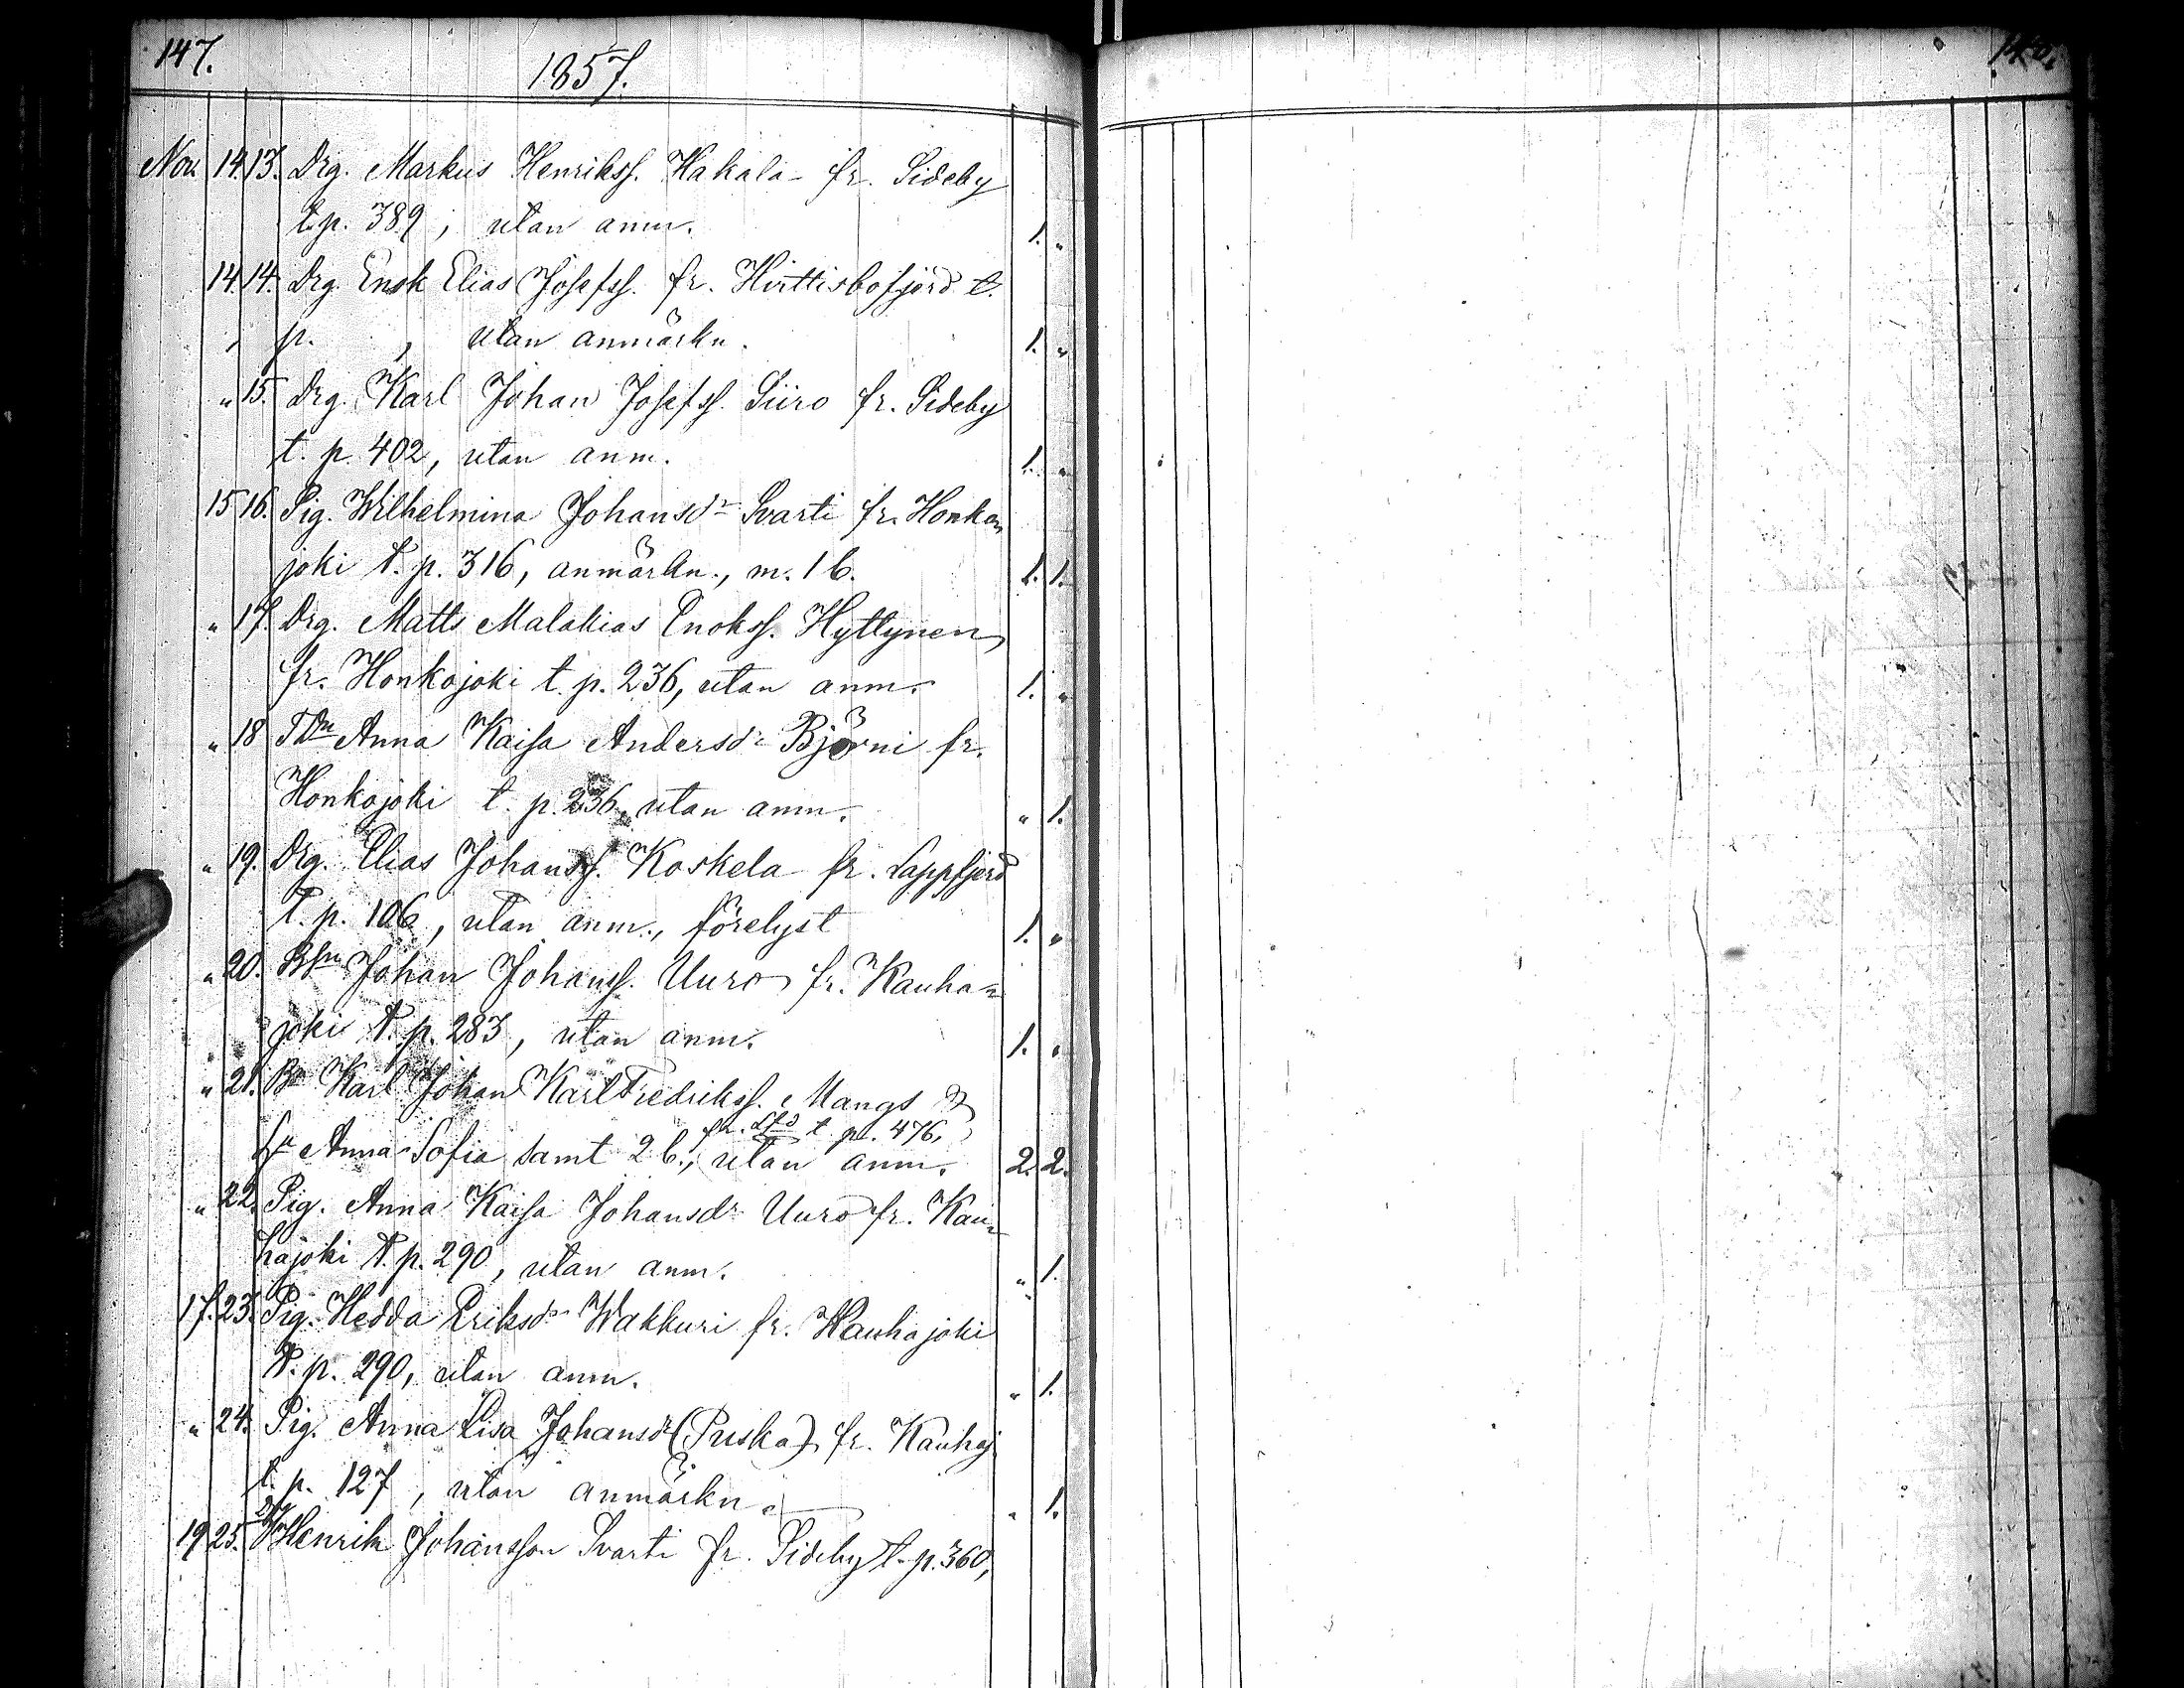 147.
1857.
148.
Nov. 14. 13. Drg. Markus Henrikss. Hakala fr. Sideby
t. p. 389, utan anm. 1. "
14. 14. Drg. Enok Elias Josefss. fr. Hirttisbofjerd t.
p. , utan anmärkn. 1. "
" 15. Drg. Karl Johan Josefss. Siiro fr. Sideby
t. p. 402, utan anm. 1. "
15 16. Pig. Wilhelmina Johansdr Svarti fr. Honka
joki t. p. 316, anmärkn., m. 1 b. 1. 1.
" 17. Drg. Matts Malakias Enokss. Hyttynen
fr. Honkojoki t. p. 236, utan anm. 1. "
" 18 Anna Kaisa Andersdr Björni fr.
Honkojoki t. p. 236, utan anm. " 1.
" 19. Drg. Elias Johanss. Koskela fr. Lappfjerd
t. p. 106, utan anm., förelyst 1. "
" 20. Bsn Johan Johanss. Uuro fr. Kauha=
joki t. p. 283, utan anm. 1. "
" 21. Bn Karl Johan Karl Fredrikss. Mangs &
fr. Lfd t. p. 476,
h. Anna Sofia samt 2 b., utan anm. 2. 2.
" 22. Pig. Anna Kaisa Johansdr Uuro fr. Kau=
hajoki t. p. 290, utan anm. " 1.
17. 23. Pig. Hedda Eriksdr Wakkuri fr. Kauhajoki
t. p. 290, utan anm. " 1.
" 24. Pig. Anna Lisa Johansdr (Puska) fr. Kauhaj
t. p. 127, utan anmärkn. " 1.
19 25. Henrik Johansson Svarti fr. Sideby t. p. 360,